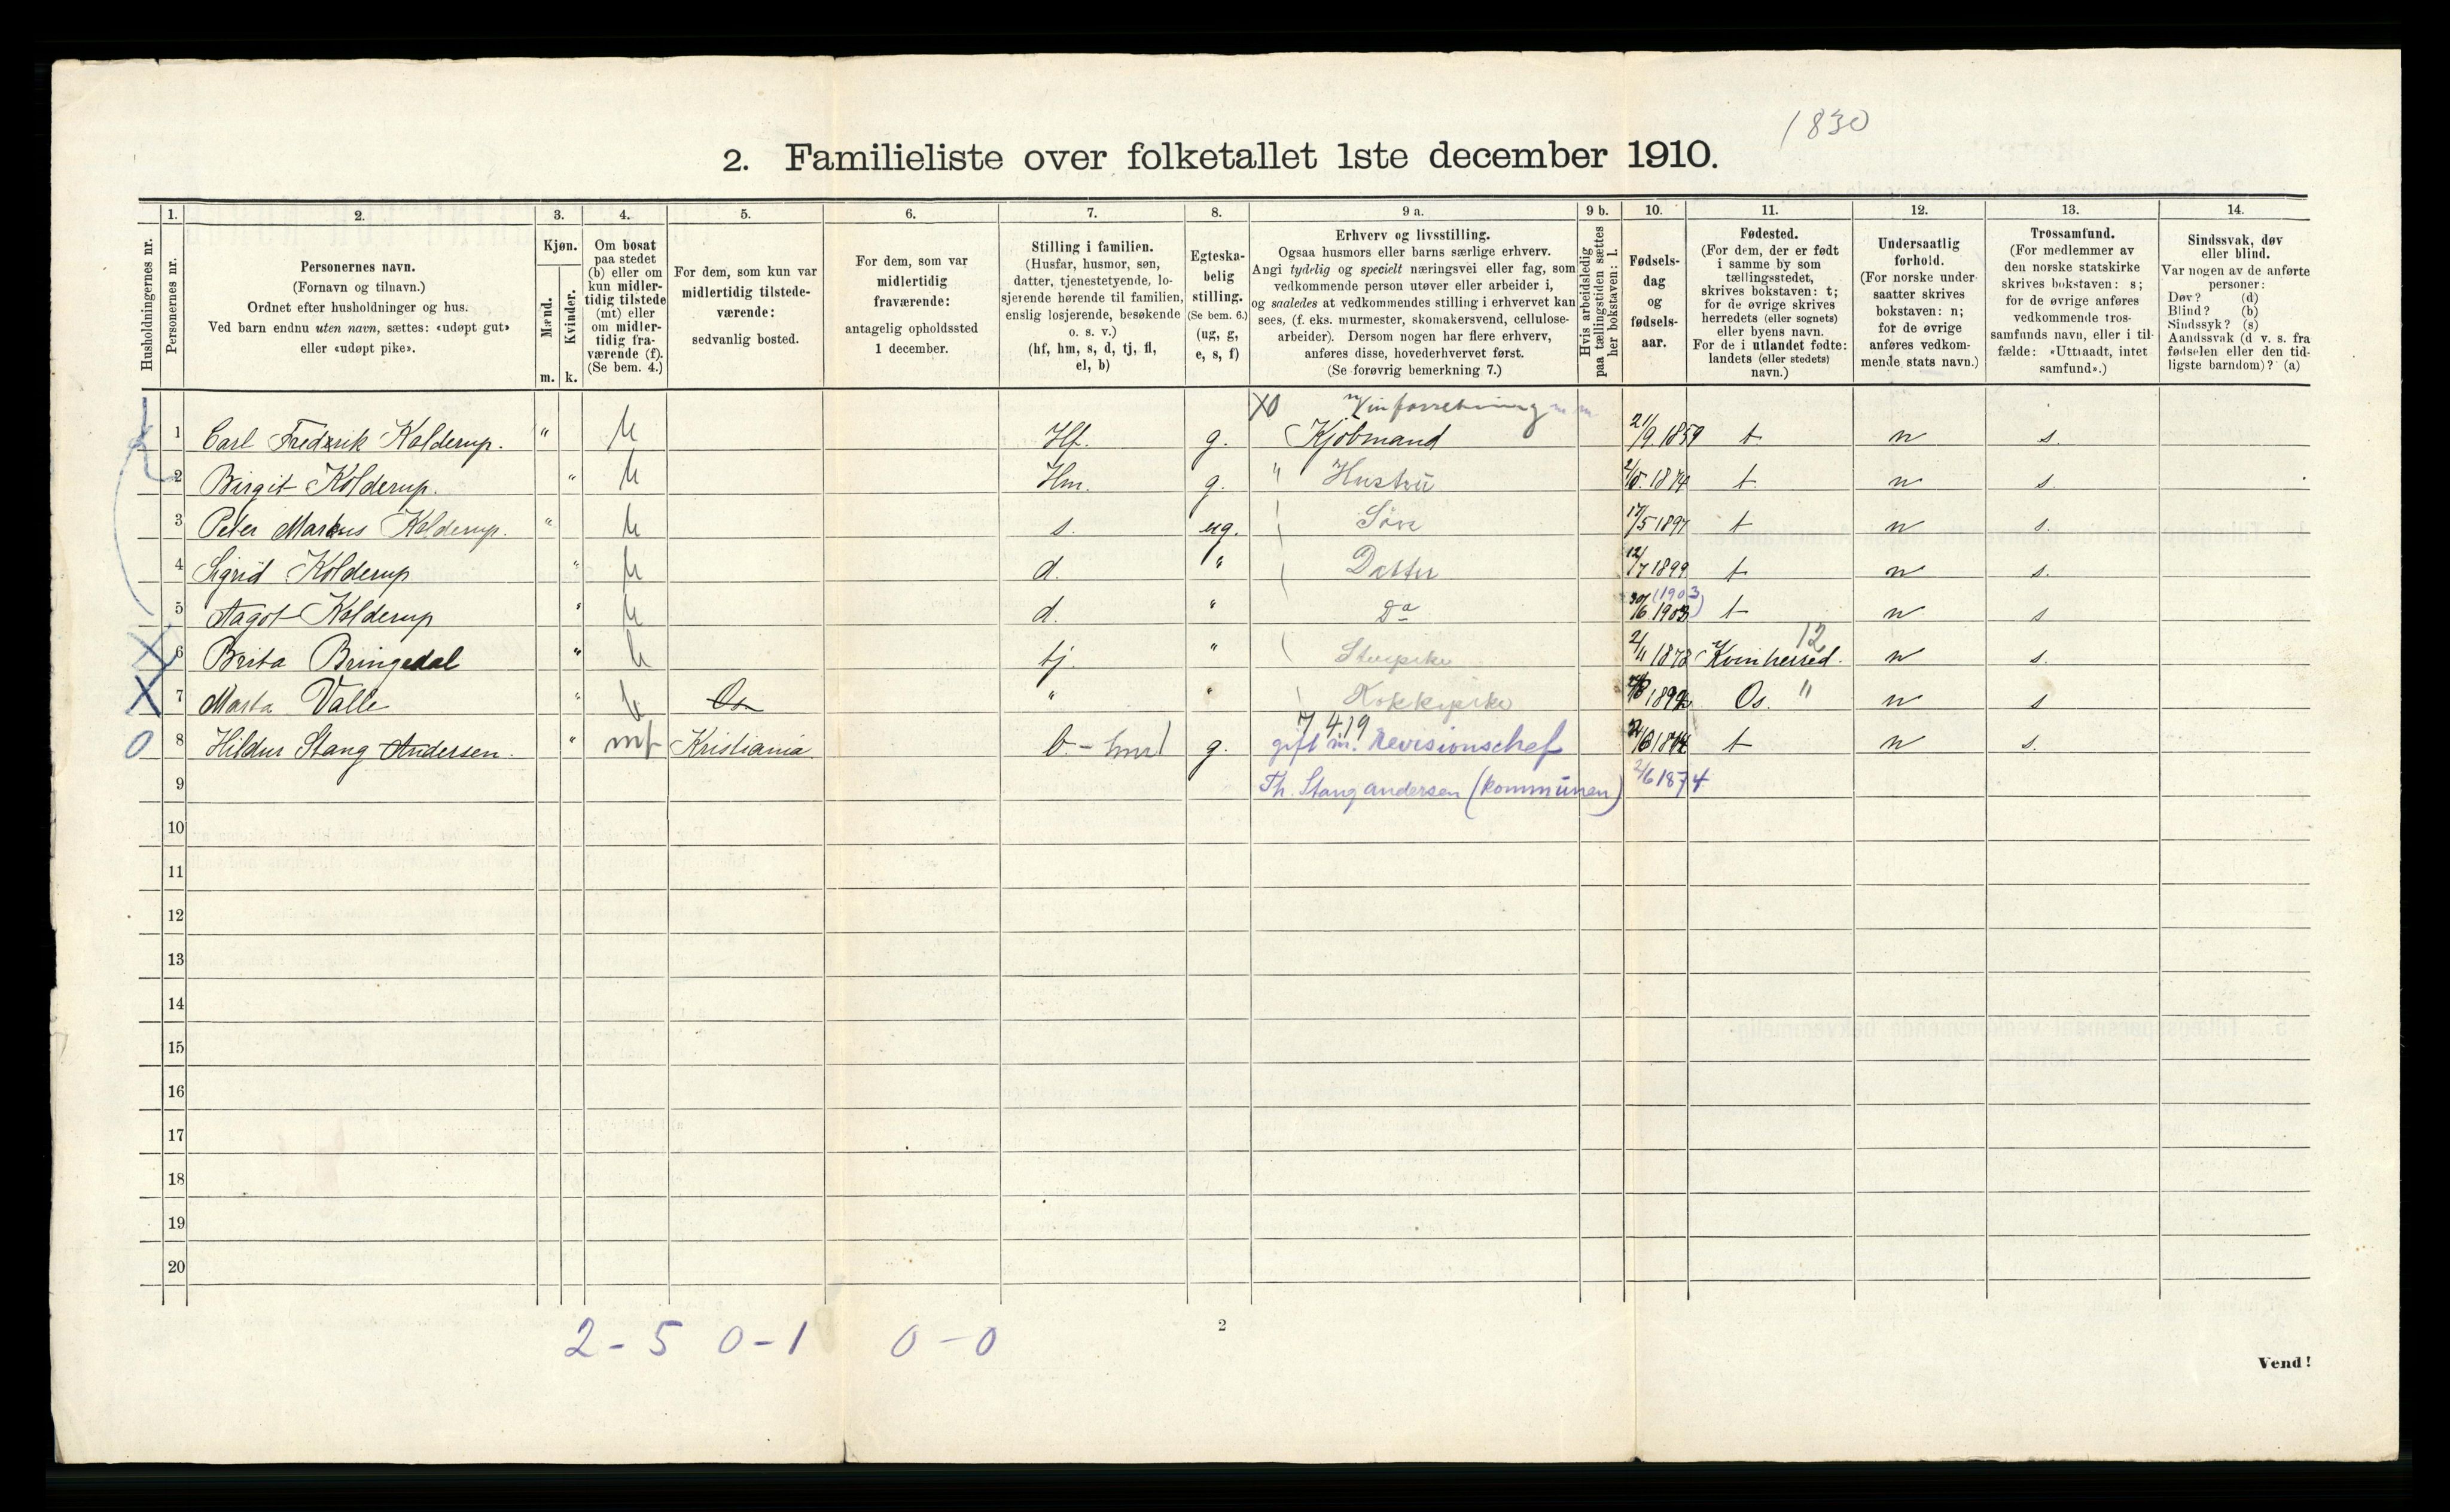 1830
2. Familieliste over folketallet 1ste december 1910.
Husholdningernes nr.
1.
Personernes nr.
2.
Personernes navn.
(Fornavn og tilnavn.)
Ordnet efter husholdninger og hus.
Ved barn endnu uten navn, sættes: «udøpt gut»
eller «udøpt pike».
3.
Kjøn.
Mænd.
Kvinder.
m. k.
4.
Om bosat
paa stedet
(b) eller om
kun midler-
tidig tilstede
(mt) eller
om midler-
tidig fra-
værende (f).
(Se bem. 4.)
5.
For dem, som kun var
midlertidig tilstede-
værende:
sedvanlig bosted.
6.
For dem, som var
midlertidig
fraværende:
antagelig opholdssted
1 december.
7.
Stilling i familien.
(Husfar, husmor, søn,
datter, tjenestetyende, lo-
sjerende hørende til familien,
enslig losjerende, besøkende
o. s. v.)
(hf, hm, s, d, tj, fl,
el, b)
8.
Egteska-
belig
stilling.
(Se bem. 6.)
(ug, g,
e, s, f)
9 a.
Erhverv og livsstilling.
Ogsaa husmors eller barns særlige erhverv.
Angi tydelig og specielt næringsvei eller fag, som
vedkommende person utøver eller arbeider i,
og saaledes at vedkommendes stilling i erhvervet kan
sees, (f. eks. murmester, skomakersvend, cellulose-
arbeider). Dersom nogen har flere erhverv,
anføres disse, hovederhvervet først.
(Se forøvrig bemerkning 7.)
9 b.
Hvis arbeidsledig
paa tællingstiden sættes
her bokstaven: l.
10.
Fødsels-
dag
og
fødsels-
aar.
11.
Fødested.
(For dem, der er født
i samme by som
tællingsstedet,
skrives bokstaven: t;
for de øvrige skrives
herredets (eller sognets)
eller byens navn.
For de i utlandet fødte:
landets (eller stedets)
navn.)
12.
Undersaatlig
forhold.
(For norske under-
saatter skrives
bokstaven: n;
for de øvrige
anføres vedkom-
mende stats navn.)
13.
Trossamfund.
(For medlemmer av
den norske statskirke
skrives bokstaven: s;
for de øvrige anføres
vedkommende tros-
samfunds navn, eller i til-
fælde: «Uttraadt, intet
samfund».)
14.
Sindssvak, døv
eller blind.
Var nogen av de anførte
personer:
Døv? (d)
Blind? (b)
Sindssyk? (s)
Aandssvak (d v. s. fra
fødselen eller den tid-
ligste barndom)? (a)
X0 Vinforretning
1 Carl Fredrik Kolderup. " b Hf. g. Kjøbmand 21/9.1859 t n s.
2 Birgit Kolderup. " b Hm. g. " Hustru 1874 t. n s.
3 Peter Markus Kolderup. " b s. ug. Søn 17/5 1897 t n s.
4 Sigrid Kolderup " b d. " Datter 12/7 1899 t n s.
5 Aagot Kolderup " b d. " Do 30/6 1903 (1903) t n s
X 6 Brita Bringedal " b tj. " Stuepike 2/11 1878 Kvinherred. 12 n s.
X 7 Marta Valle " b Os " " Kokkepike 1892 Os. " n s
7419
0 8 Hildur Stang Andersen. " mt Kristiania. b. - g. gift m. Revisionschef 1874 t n s.
9 Th. Stang Andersen (kommunen) 2/6 1874
10
11
12
13
14
15
16
17
18
19
20
2 - 5 0 - 1 0 - 0
2
Vend!